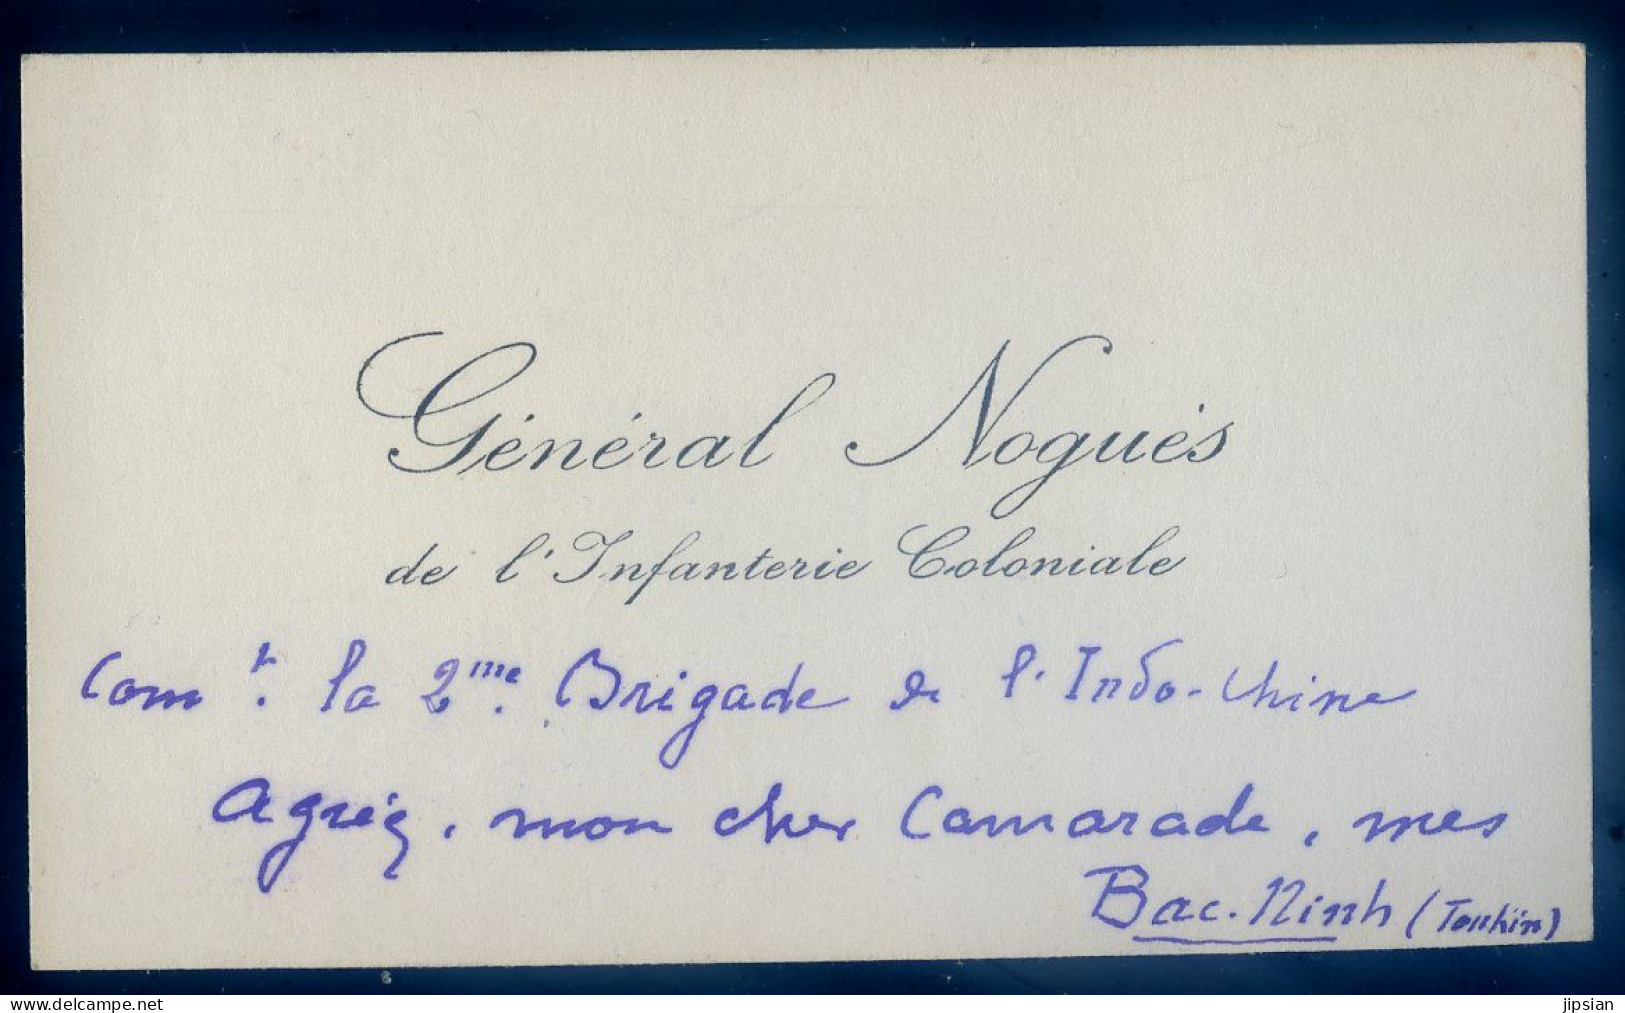 Général Noguès
de l'Infanterie Coloniale
Comt. la 2me. Brigade de l'Indo-Chine
Agréez, mon cher Camarade, mes
Bac-Ninh (Tonkin)
www.delcampe.net
jipsian